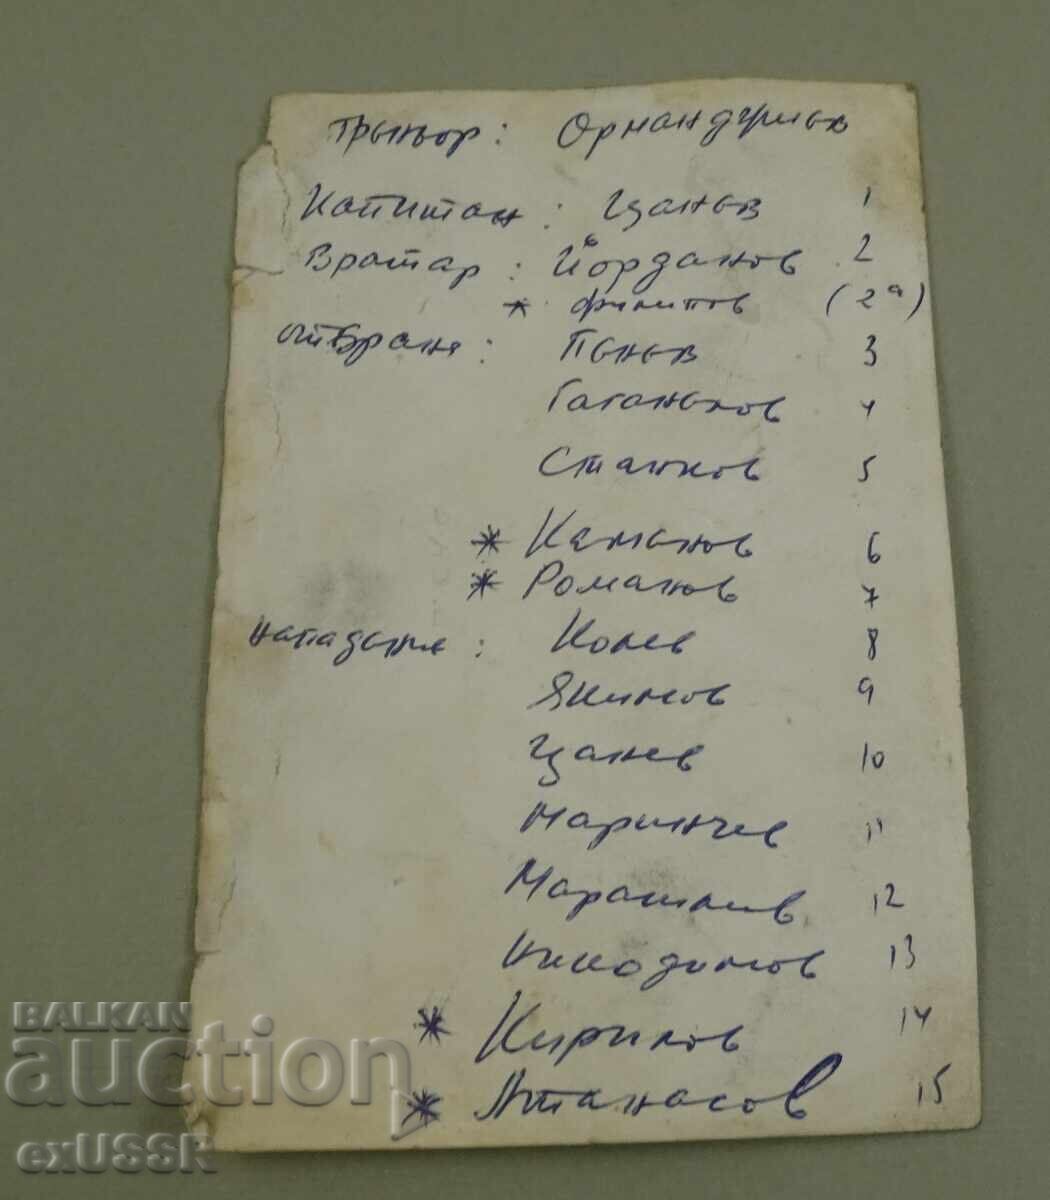 Треньор: Орманджиев
Капитан: Цанев 1
Вратар: Йорданов 2
* Филипов (2а)
отбрана: Пенев 3
Гаганелов 4
Станков 5
* Каменов 6
* Романов 7
нападение: Колев 8
Якимов 9
Цанев 10
Маринчев 11
Марашлиев 12
Никодимов 13
* Кирилов 14
* Атанасов 15
BALKAN
auction
exUSSR